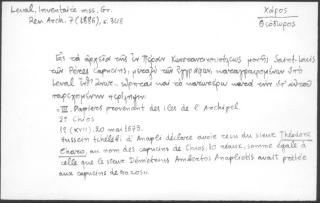 Leval, Inventaire mss. Gr.
Rev. Arch. 7 (1886), σ. 308
Χάρος
Θεόδωρος
Εἰς τὰ ἀρχεῖα τῆς ἐν Πέραν Κωνσταντινουπόλεως μονῆς Saint-Louis
τῶν Pères Capucins, μεταξὺ τῶν ἐγγράφων, καταγραφομένων ὑπὸ
Leval ἔνθ' ἀνωτ. εὕρηται καὶ τὸ κατωτέρω κατὰ τὴν ὑπ' αὐτοῦ
παρεχομένην περίληψιν:
"III. Papiers provenant des îles de l'Archipel.
2º Chios
12 (XVII). 20 mai 1673.
Hussein tchélébi d'Anapli déclare avoir reçu du sieur Théodore
Charo, au nom des capucins de Chios, 60 réaux, somme égale à
celle que le sieur Démétrius Anapliotis avait prêtée
aux capucins de Naxos".